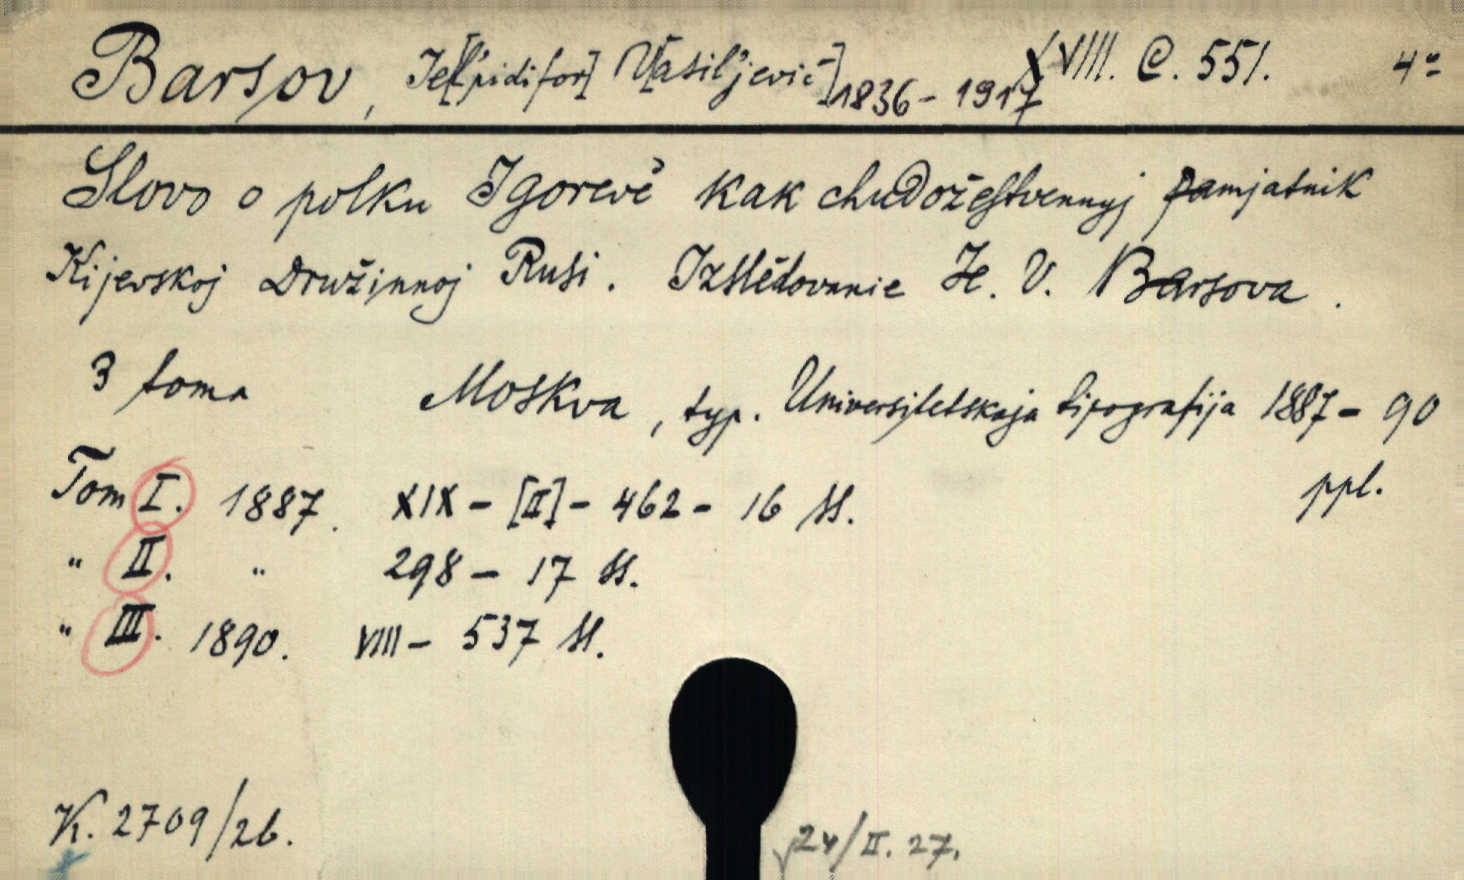 Barsov, Je[l'pidifor] V[asil'jevič] 1836-1917 XVIII. C. 551. 4°
Slovo o polku Igorevě kak chudožestvennyj pamjatnik
Kijevskoj Družinnoj Rusi. Izslědovanie Je. V. Barsova.
3 toma Moskva, typ. Universitetskaja tipografija 1887-90
ppl.
Tom I. 1887. XIX-[II]-462-16 SS.
" II. " 298-17 SS.
" III. 1890. VIII-537 SS.
K. 2709/26. 24/II. 27.